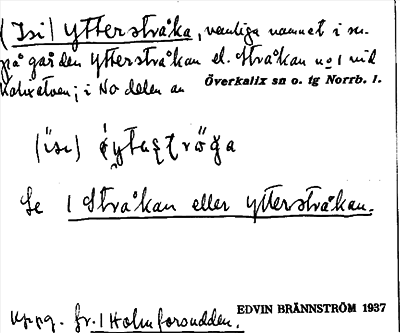 ( Isi) ytterstråka, vanliga namnet i sn.
på gården Ytterstråkan el. Stråkan no 1 vid
Kalixälven; i No delen av Överkalix sn o. tg Norrb. l.
Se 1 Stråkan eller ytterstråkan.
Uppg. fr. 1 Holmforsudden.
EDVIN BRÄNNSTRÖM 1937